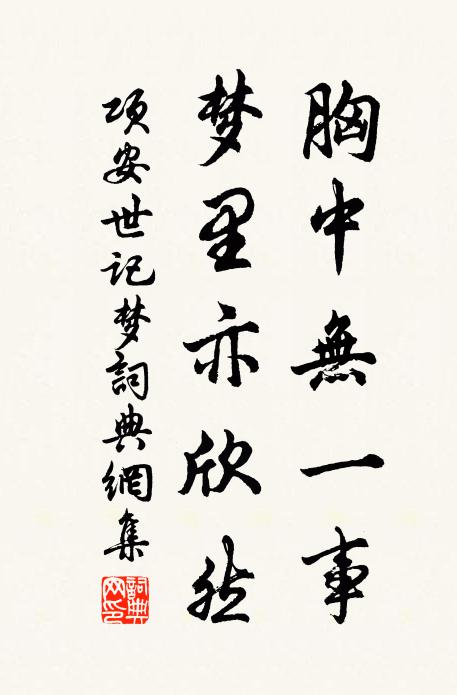 胸中無一事
梦里亦欣然
项安世记梦詞典網集
詞典网印